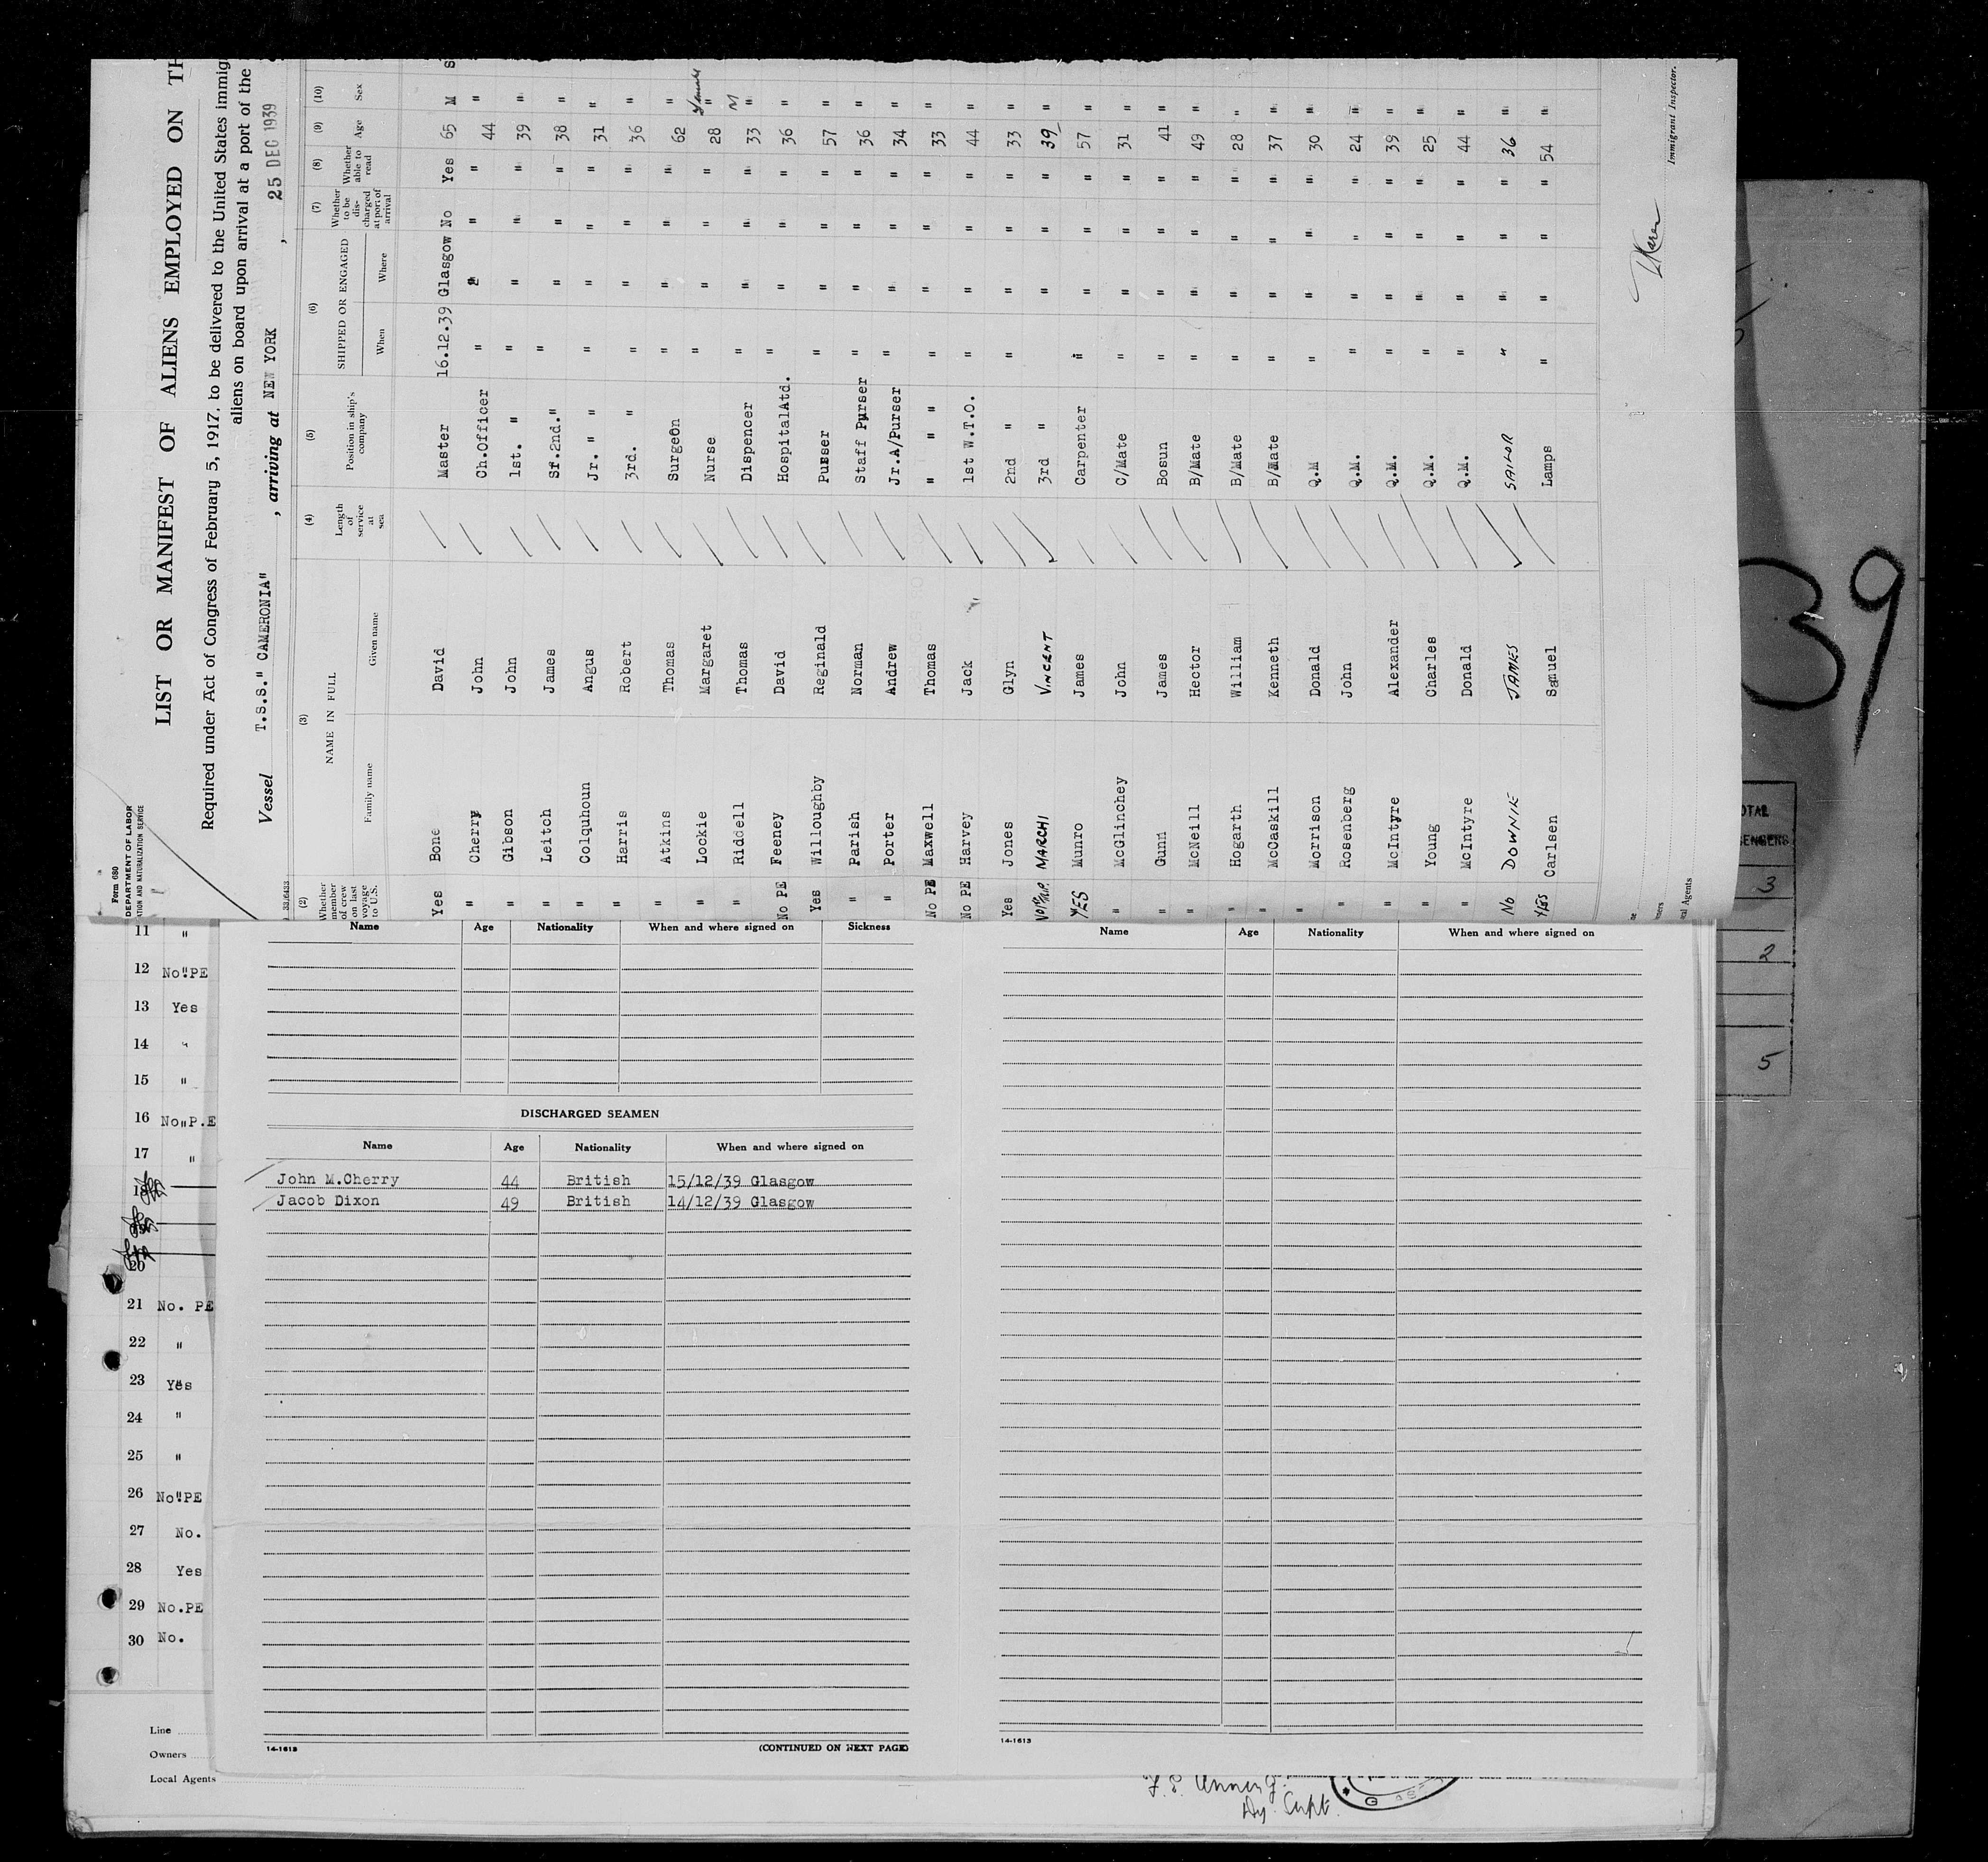 Form 680
DEPARTMENT OF LABOR
LIST OR MANIFEST OF ALIENS EMPLOYED ON TH
Required under Act of Congress of February 5, 1917, to be delivered to the United States immig
aliens on board upon arrival at a port of the
Vessel T.S.S." CAMERONIA" , arriving at NEW YORK , 25 DEC 1939
(2) (3) (4) (5) (6) (7) (8) (9) (10)
Whether member of crew on last voyage to U.S. NAME IN FULL Length of service at sea Position in ship's company SHIPPED OR ENGAGED Whether to be discharged at port of arrival Whether able to read Age Sex
Family name Given name When Where
Yes Bone David Master 16.12.39 Glasgow No Yes 65 M S
" Cherry John Ch.Officer " " " " 44 "
" Gibson John 1st. " " " " " 39 "
" Leitch James Sr.2nd." " " " " 38 "
" Colquhoun Angus Jr. " " " " " " 31 "
" Harris Robert 3rd. " " " " " 36 "
" Atkins Thomas Surgeon " " " " 62 "
" Lockie Margaret Nurse " " " " 28 " Female
" Riddell Thomas Dispencer " " " " 33 " M
No PE Feeney David HospitalAtd. " " " " 36 "
Yes Willoughby Reginald Purser " " " " 57 "
" Parish Norman Staff Purser " " " " 36 "
" Porter Andrew Jr.A/Purser " " " " 34 "
No PE Maxwell Thomas " " " " " " " 33 "
No PE Harvey Jack 1st W.T.O. " " " " 44 "
Yes Jones Glyn 2nd " " " " " 33 "
MARCHI VINCENT 3rd " " " " 39 "
YES Munro James Carpenter " " " " 57 "
" McGlinchey John C/Mate " " " " 31 "
" Gunn James Bosun " " " " 41 "
" McNeill Hector B/Mate " " " " 49 "
" Hogarth William B/Mate " " " " 28 "
" McCaskill Kenneth B/Mate " " " " 37 "
" Morrison Donald Q.M " " " " 30 "
" Rosenberg John Q.M. " " " " 24 "
" McIntyre Alexander Q.M. " " " " 39 "
" Young Charles Q.M. " " " " 25 "
" McIntyre Donald Q.M. " " " " 44 "
No DOWNIE JAMES SAILOR " " " " 36 "
YES Carlsen Samuel Lamps " " " " 54 "
Immigrant Inspector.
39
3
2
5
11 "
12 No"PE
13 Yes
14 "
15 "
16 No"P.E
17 "
20
21 No. PE
22 "
23 Yes
24 "
25 "
26 No"PE
27 No.
28 Yes
29 No.PE
30 No.
Line
Owners
Local Agents
Name Age Nationality When and where signed on Sickness
DISCHARGED SEAMEN
Name Age Nationality When and where signed on
John M.Cherry 44 British 15/12/39 Glasgow
Jacob Dixon 49 British 14/12/39 Glasgow
14-1613 (CONTINUED ON NEXT PAGE)
Name Age Nationality When and where signed on
14-1613